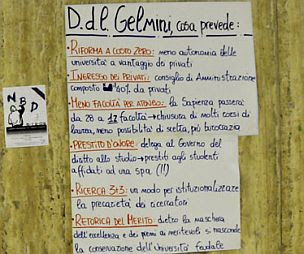 D.d.l. Gelmini, cosa prevede:
• RIFORMA A COSTO ZERO: meno autonomia delle
università a vantaggio dei privati
• INGRESSO DEI PRIVATI: consiglio di Amministrazione
composto 40% da privati
• MENO FACOLTÀ PER ATENEO: la Sapienza passerà
da 28 a 12 facoltà → chiusura di molti corsi di
laurea, meno possibilità di scelta, più burocrazia
• PRESTITO D'ONORE: delega al Governo del
diritto allo studio → prestiti agli studenti
affidati ad una spa (!!)
• RICERCA 3+3: un modo per istituzionalizzare
la precarietà dei ricercatori
• RETORICA DEL MERITO: dietro la maschera
dell'eccellenza e dei premi ai meritevoli si nasconde
la conservazione dell'Università feudale
N B
D